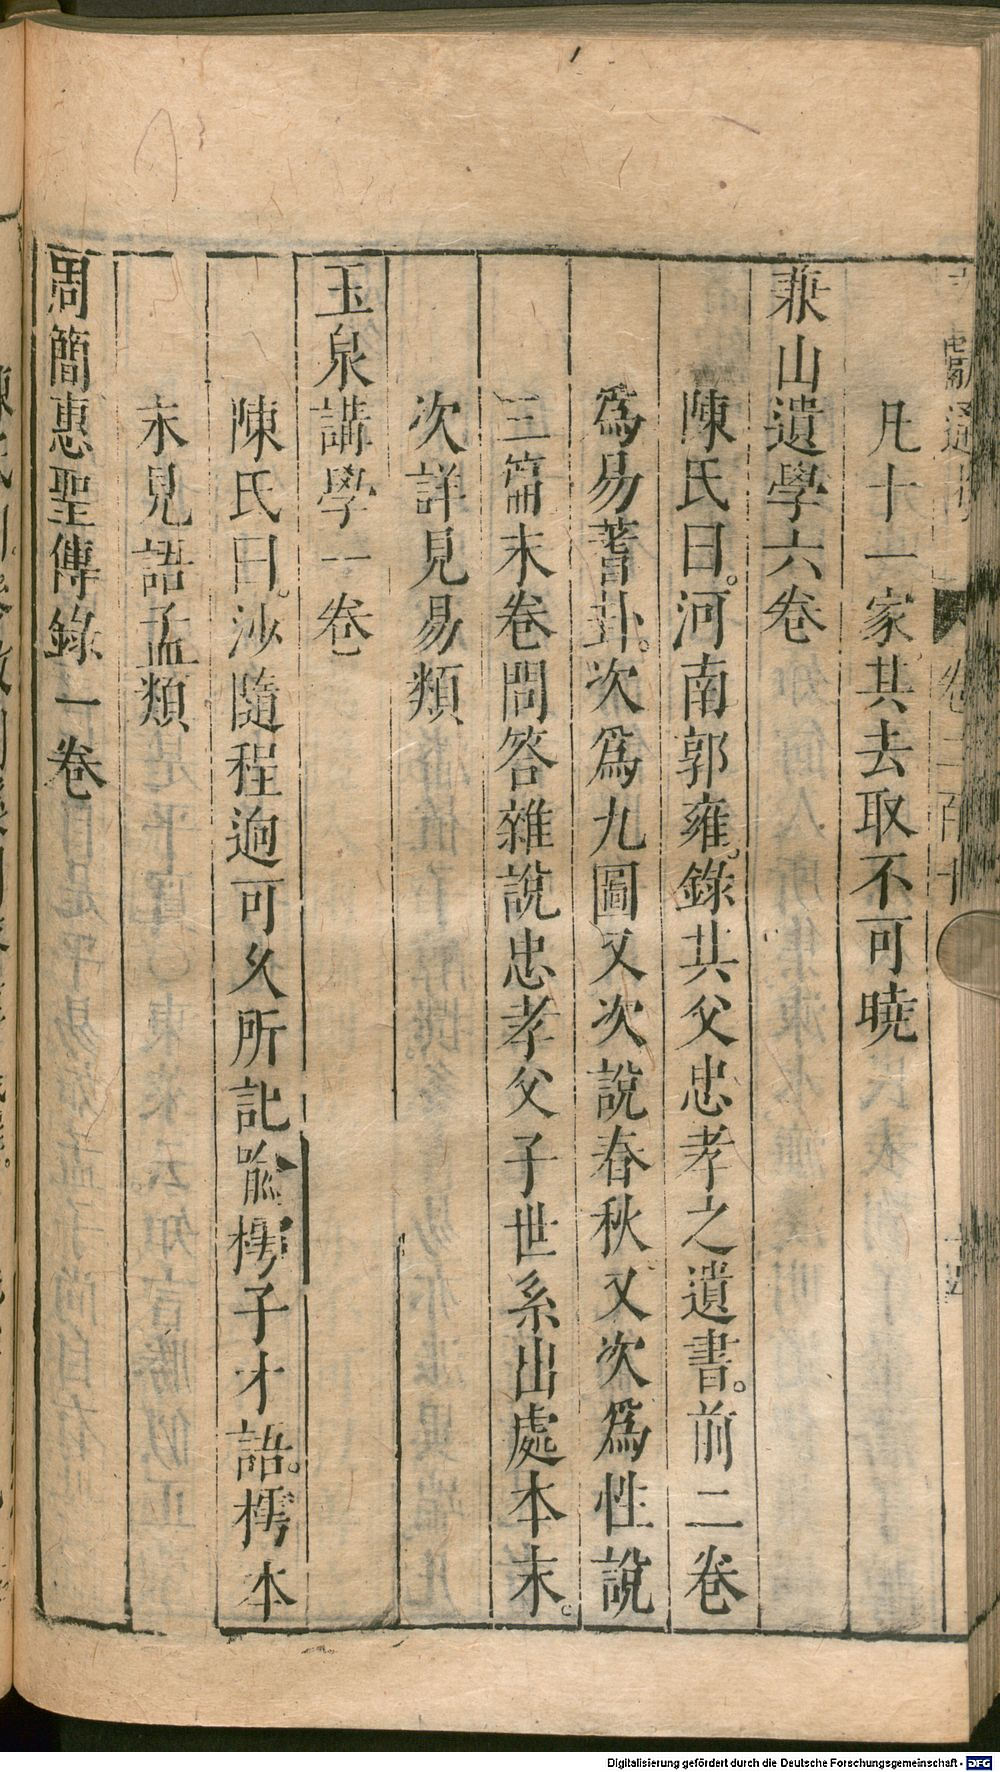 凡十一家其去取不可曉
兼山遺學六卷
陳氏曰。河南郭雍。錄其父忠孝之遺書。前二卷
為易蓍卦。次為九圖又次說春秋又次為性說
三篇末卷問答雜說忠孝父子世系出處本末。
次詳見易類
玉泉講學一卷
陳氏曰。沙隨程迥可久所記喻樗子才語。樗本
末見語孟類
周簡惠聖傳錄一卷
Digitalisierung gefördert durch die Deutsche Forschungsgemeinschaft - DFG